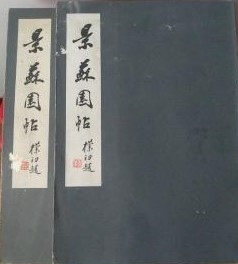 景蘇園帖
樸初題
景蘇園帖
樸初題